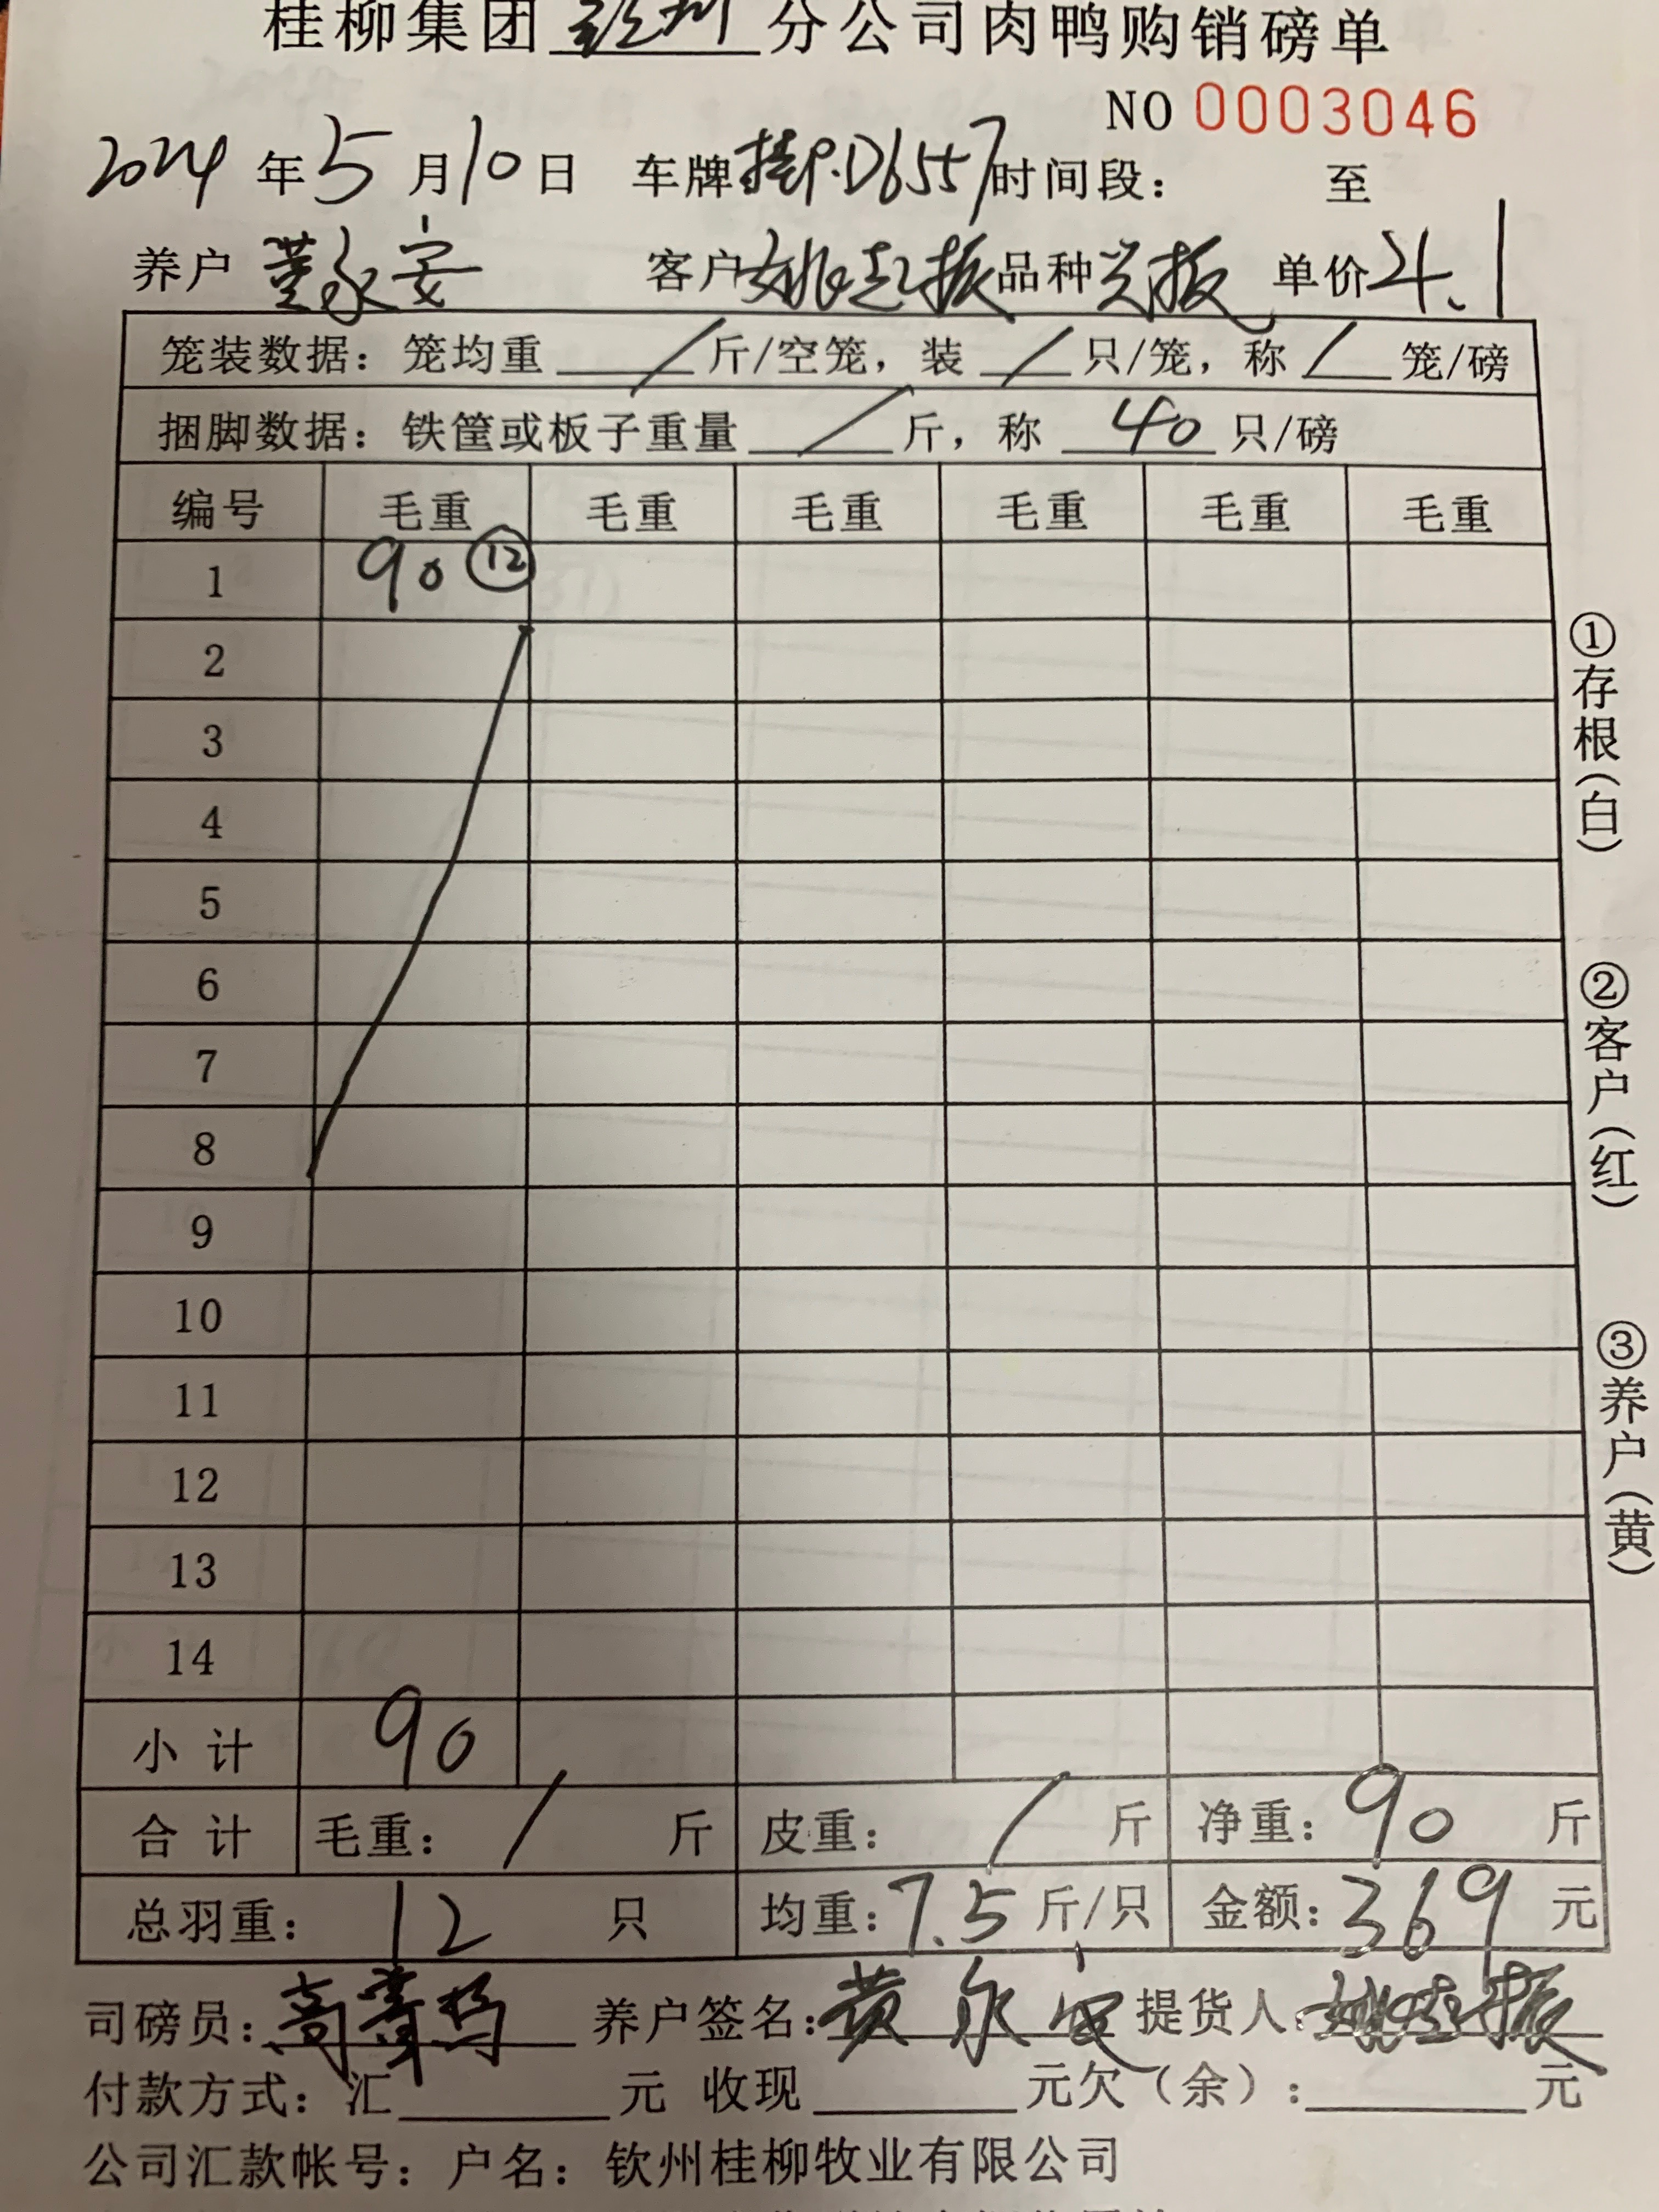 桂柳集团钦州分公司肉鸭购销磅单
NO 0003046
2024年5月10日 车牌桂P.D6557时间段： 至
养户 黄永安 客户姚起振品种 单价4.1
笼装数据：笼均重/斤/空笼，装/只/笼，称/笼/磅
捆脚数据：铁筐或板子重量/斤，称40只/磅
编号 毛重 毛重 毛重 毛重 毛重 毛重
1 90 ⑫
2
3
4
5
6
7
8
9
10
11
12
13
14
小计 90
合计 毛重：/斤 皮重：/斤 净重：90斤
总羽重：12只 均重：7.5斤/只 金额：369元
司磅员： 养户签名：黄永安 提货人：
付款方式：汇 元 收现 元欠（余）： 元
公司汇款帐号：户名：钦州桂柳牧业有限公司
①存根（白）
②客户（红）
③养户（黄）